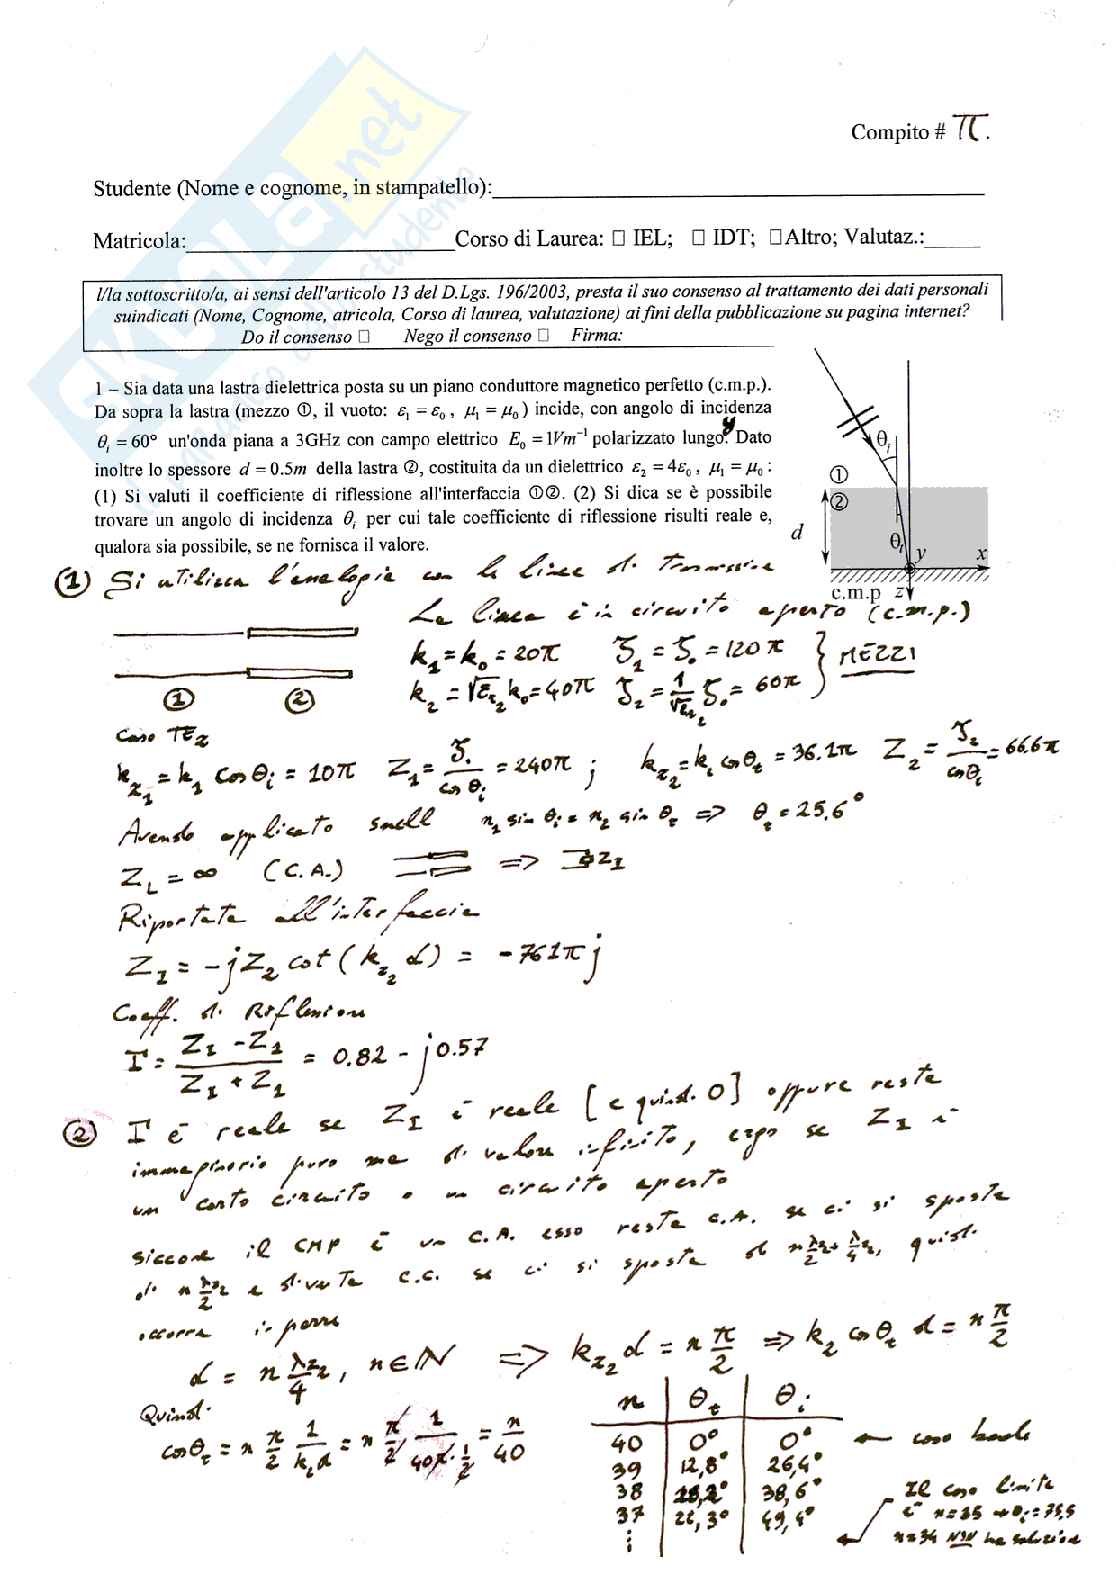 Compito # π.
Studente (Nome e cognome, in stampatello):
Matricola: Corso di Laurea: □ IEL; □ IDT; □Altro; Valutaz.:
I/la sottoscritto/a, ai sensi dell'articolo 13 del D.Lgs. 196/2003, presta il suo consenso al trattamento dei dati personali
suindicati (Nome, Cognome, atricola, Corso di laurea, valutazione) ai fini della pubblicazione su pagina internet?
Do il consenso □ Nego il consenso □ Firma:
1 – Sia data una lastra dielettrica posta su un piano conduttore magnetico perfetto (c.m.p.).
Da sopra la lastra (mezzo ①, il vuoto: ε₁ = ε₀, μ₁ = μ₀) incide, con angolo di incidenza
θᵢ = 60° un'onda piana a 3GHz con campo elettrico E₀ = 1Vm⁻¹ polarizzato lungo y. Dato
inoltre lo spessore d = 0.5m della lastra ②, costituita da un dielettrico ε₂ = 4ε₀, μ₁ = μ₀:
(1) Si valuti il coefficiente di riflessione all'interfaccia ①②. (2) Si dica se è possibile
trovare un angolo di incidenza θᵢ per cui tale coefficiente di riflessione risulti reale e,
qualora sia possibile, se ne fornisca il valore.
θᵢ
①
②
d
θₜ
y
x
c.m.p z
① Si utilizza l'analogia con le linee di trasmissione
La linea è in circuito aperto (c.m.p.)
k₁ = k₀ = 20π ζ₁ = ζ₀ = 120π } MEZZI
k₂ = √εᵣ₂ k₀ = 40π ζ₂ = 1/√εᵣ₂ ζ₀ = 60π
① ②
Caso TE_z
k_z₁ = k₁ cosθᵢ = 10π Z₁ = ζ₀/cosθᵢ = 240π ; k_z₂ = kᵢ cosθₜ = 36.1π Z₂ = ζ₂/cosθᵢ = 66.6π
Avendo applicato snell n₁ sinθᵢ = n₂ sinθₜ => θₜ = 25,6°
Z_L = ∞ (C.A.) => Z_I
Riportata all'interfaccia
Z_I = -jZ₂ cot(k_z₂ d) = -761πj
Coeff. di Riflessione
Γ = (Z_I - Z₁)/(Z_I + Z₁) = 0.82 - j0.57
② Γ è reale se Z_I è reale [e quindi 0] oppure resta
immaginario puro ma di valore infinito, ergo se Z_I è
un corto circuito o un circuito aperto
siccome il CMP è un C.A. esso resta C.A. se ci si sposta
di n λ_z₂/2 e diventa C.C. se ci si sposta di n λ_z₂/2 + λ_z₂/4, quindi
occorre imporre
d = n λ_z₂/4, n∈N => k_z₂ d = n π/2 => k₂ cosθₜ d = n π/2
Quindi
cosθₜ = n π/2 1/(kᵢ d) = n π/2 1/(40π · 1/2) = n/40
n θₜ θᵢ
40 0° 0° ← caso banale
39 12,8° 26,4°
38 18,2° 38,6°
37 22,3° 49,4°
⋮
Il caso limite
è n=35 → θᵢ = 75,5
n=34 NON ha soluzione